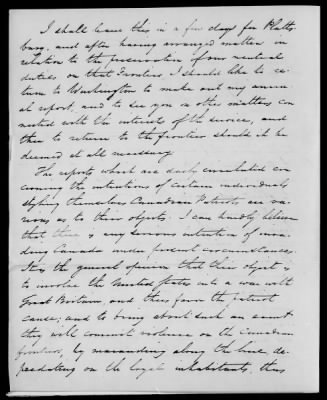 I shall leave this in a few days for Platts-
burg, and after having arranged matters in
relation to the preservation of our neutral
duties on that frontier, I should like to re-
turn to Washington to make out my annu-
al report, and to see you on other matters con-
nected with the interests of the service, and
then to return to the frontier should it be
deemed at all necessary.
The reports which are daily circulated con-
cerning the intentions of certain individuals
styling themselves Canadian Patriots are va-
rious as to their objects. I can hardly believe
that there is any serious intention of inva-
ding Canada under present circumstances.
It is the general opinion that their object is
to involve the United States into a war with
Great Britain, and thus favor the patriot
cause; and to bring about such an event
they will commit violence on the Canadian
frontier, by marauding along the line, de-
predating on the loyal inhabitants, thus